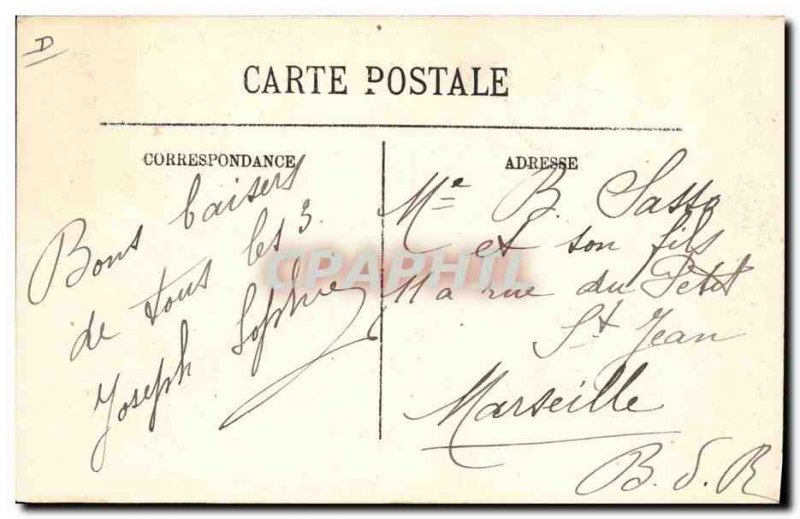 D
CARTE POSTALE
CORRESPONDANCE
Bons baisers
de tous les 3.
Joseph Sophie
ADRESSE
Me B. Sasso
et son fils
11a rue du Petit
St Jean
Marseille
B. d. R
CPAPHIL